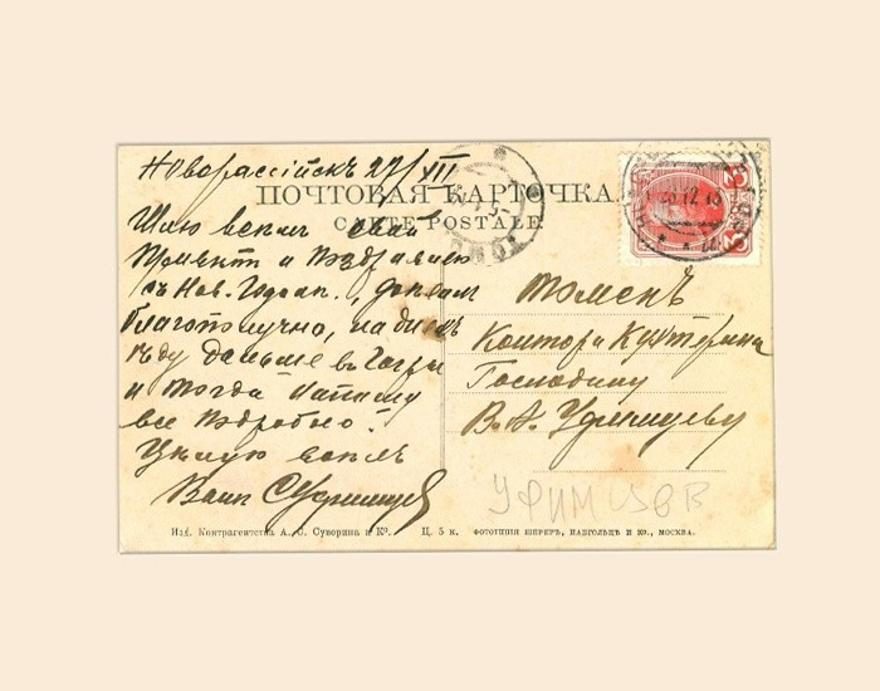 Новорассійскъ 27/XII
ПОЧТОВАЯ КАРТОЧКА.
CARTE POSTALE
Шлю всѣмъ свой
Привѣтъ и Поздравляю
съ Нов. Годомъ., доѣхал
благополучно, на дняхъ
ѣду дальше въ Гагры
и тогда Напишу
все Подробно.
Цѣлую всѣхъ
Вашъ С Уфимцев
28 12 13
Томскъ
Контора Кухтерина
Господину
В. А. Уфимцеву
УФИМЦЕВ В
Изд. Контрагентства А. С. Суворина и Ко. Ц. 5 к. ФОТОТИПІЯ ШЕРЕРЪ, НАБГОЛЬЦЪ И КО., МОСКВА.